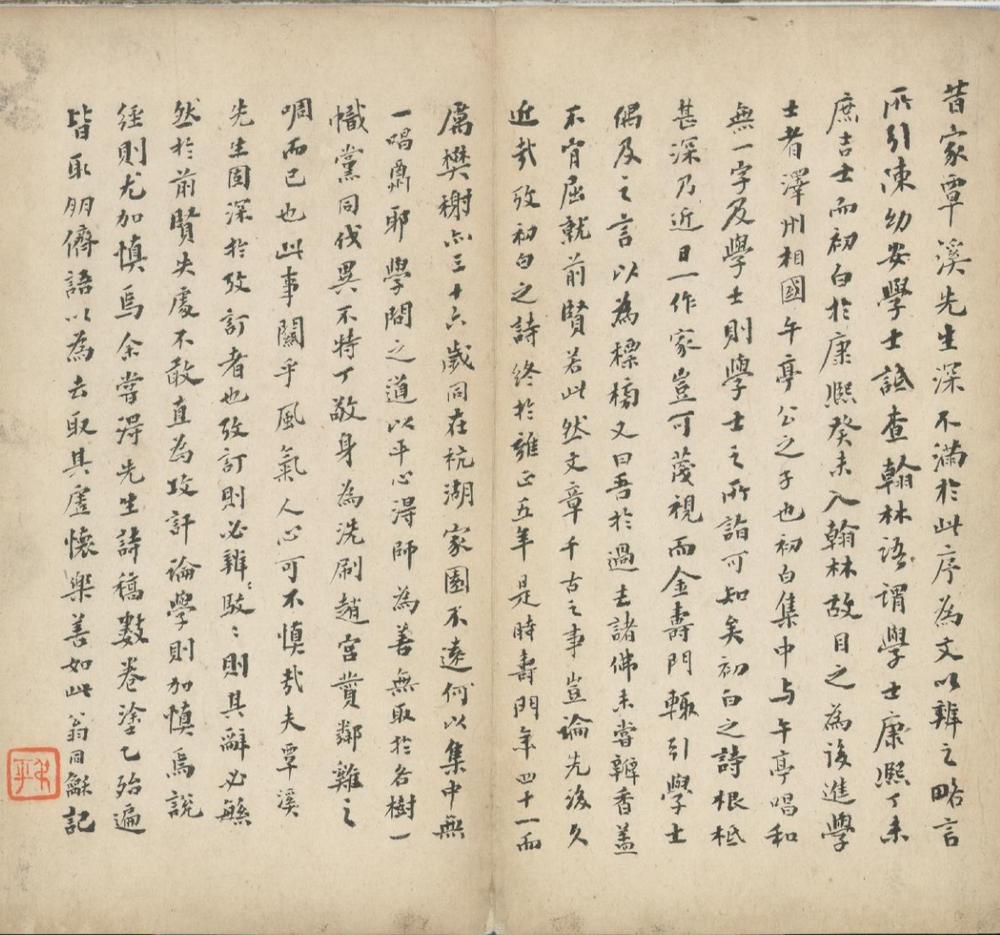 昔家覃溪先生深不滿於此序為文以辨之略言
所引陳幼安學士詆查翰林語謂學士康熙丁未
庶吉士而初白於康熙癸未入翰林故目之為後進學
士者澤州相國午亭公之子也初白集中与午亭唱和
無一字及學士則學士之所詣可知矣初白之詩根柢
甚深乃近日一作家豈可蔑視而金壽門輒引學士
偶及之言以為標榜又曰吾於過去諸佛未嘗瓣香蓋
不肯屈就前賢若此然文章千古之事豈論先後久
近哉攷初白之詩終於雍正五年是時壽門年四十一而
厲樊榭亦三十六歲同在杭湖家園不遠何以集中無
一唱酬耶學問之道以平心得師為善無取於各樹一
幟黨同伐異不特丁敬身為洗刷趙宮贊鄰雞之
啁而已也此事關乎風氣人心可不慎哉夫覃溪
先生固深於攷訂者也攷訂則必辨駁〻則其辭必繇
然於前賢失處不敢直為攻訐論學則加慎焉說
經則尤加慎焉余嘗得先生詩稿數卷塗乙殆遍
皆取朋儕語以為去取其虛懷樂善如此翁同龢記